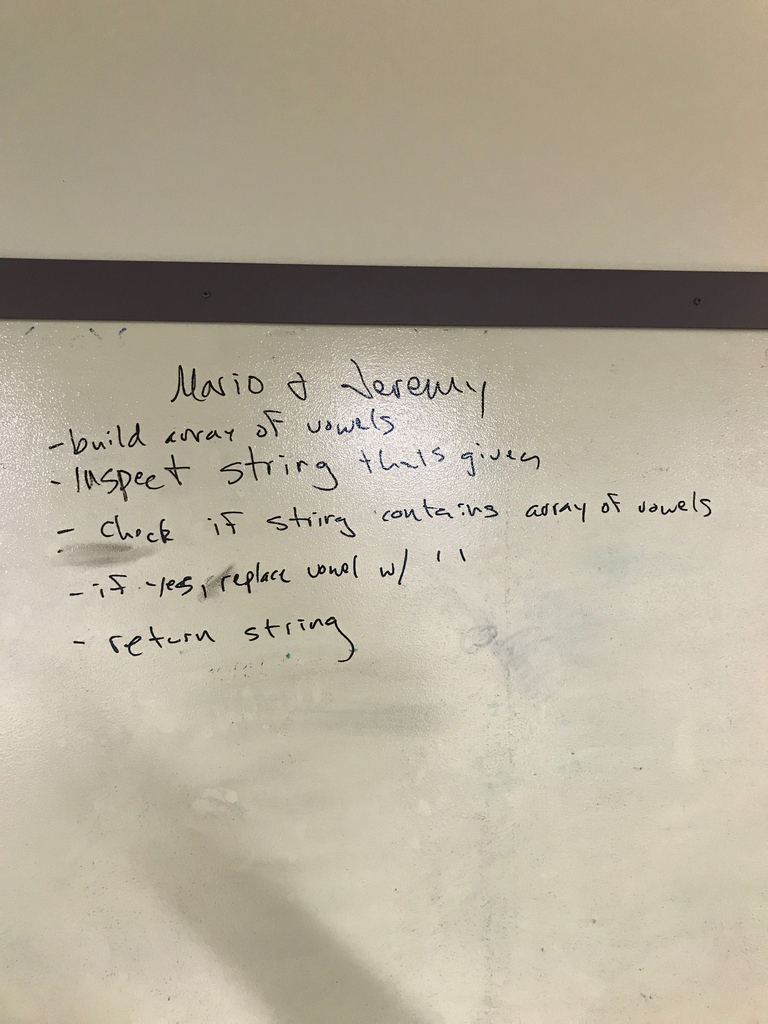 Mario & Jeremy
- build array of vowels
- Inspect string thats given
- Check if string contains array of vowels
- if yes, replace vowel w/ ' '
- return string